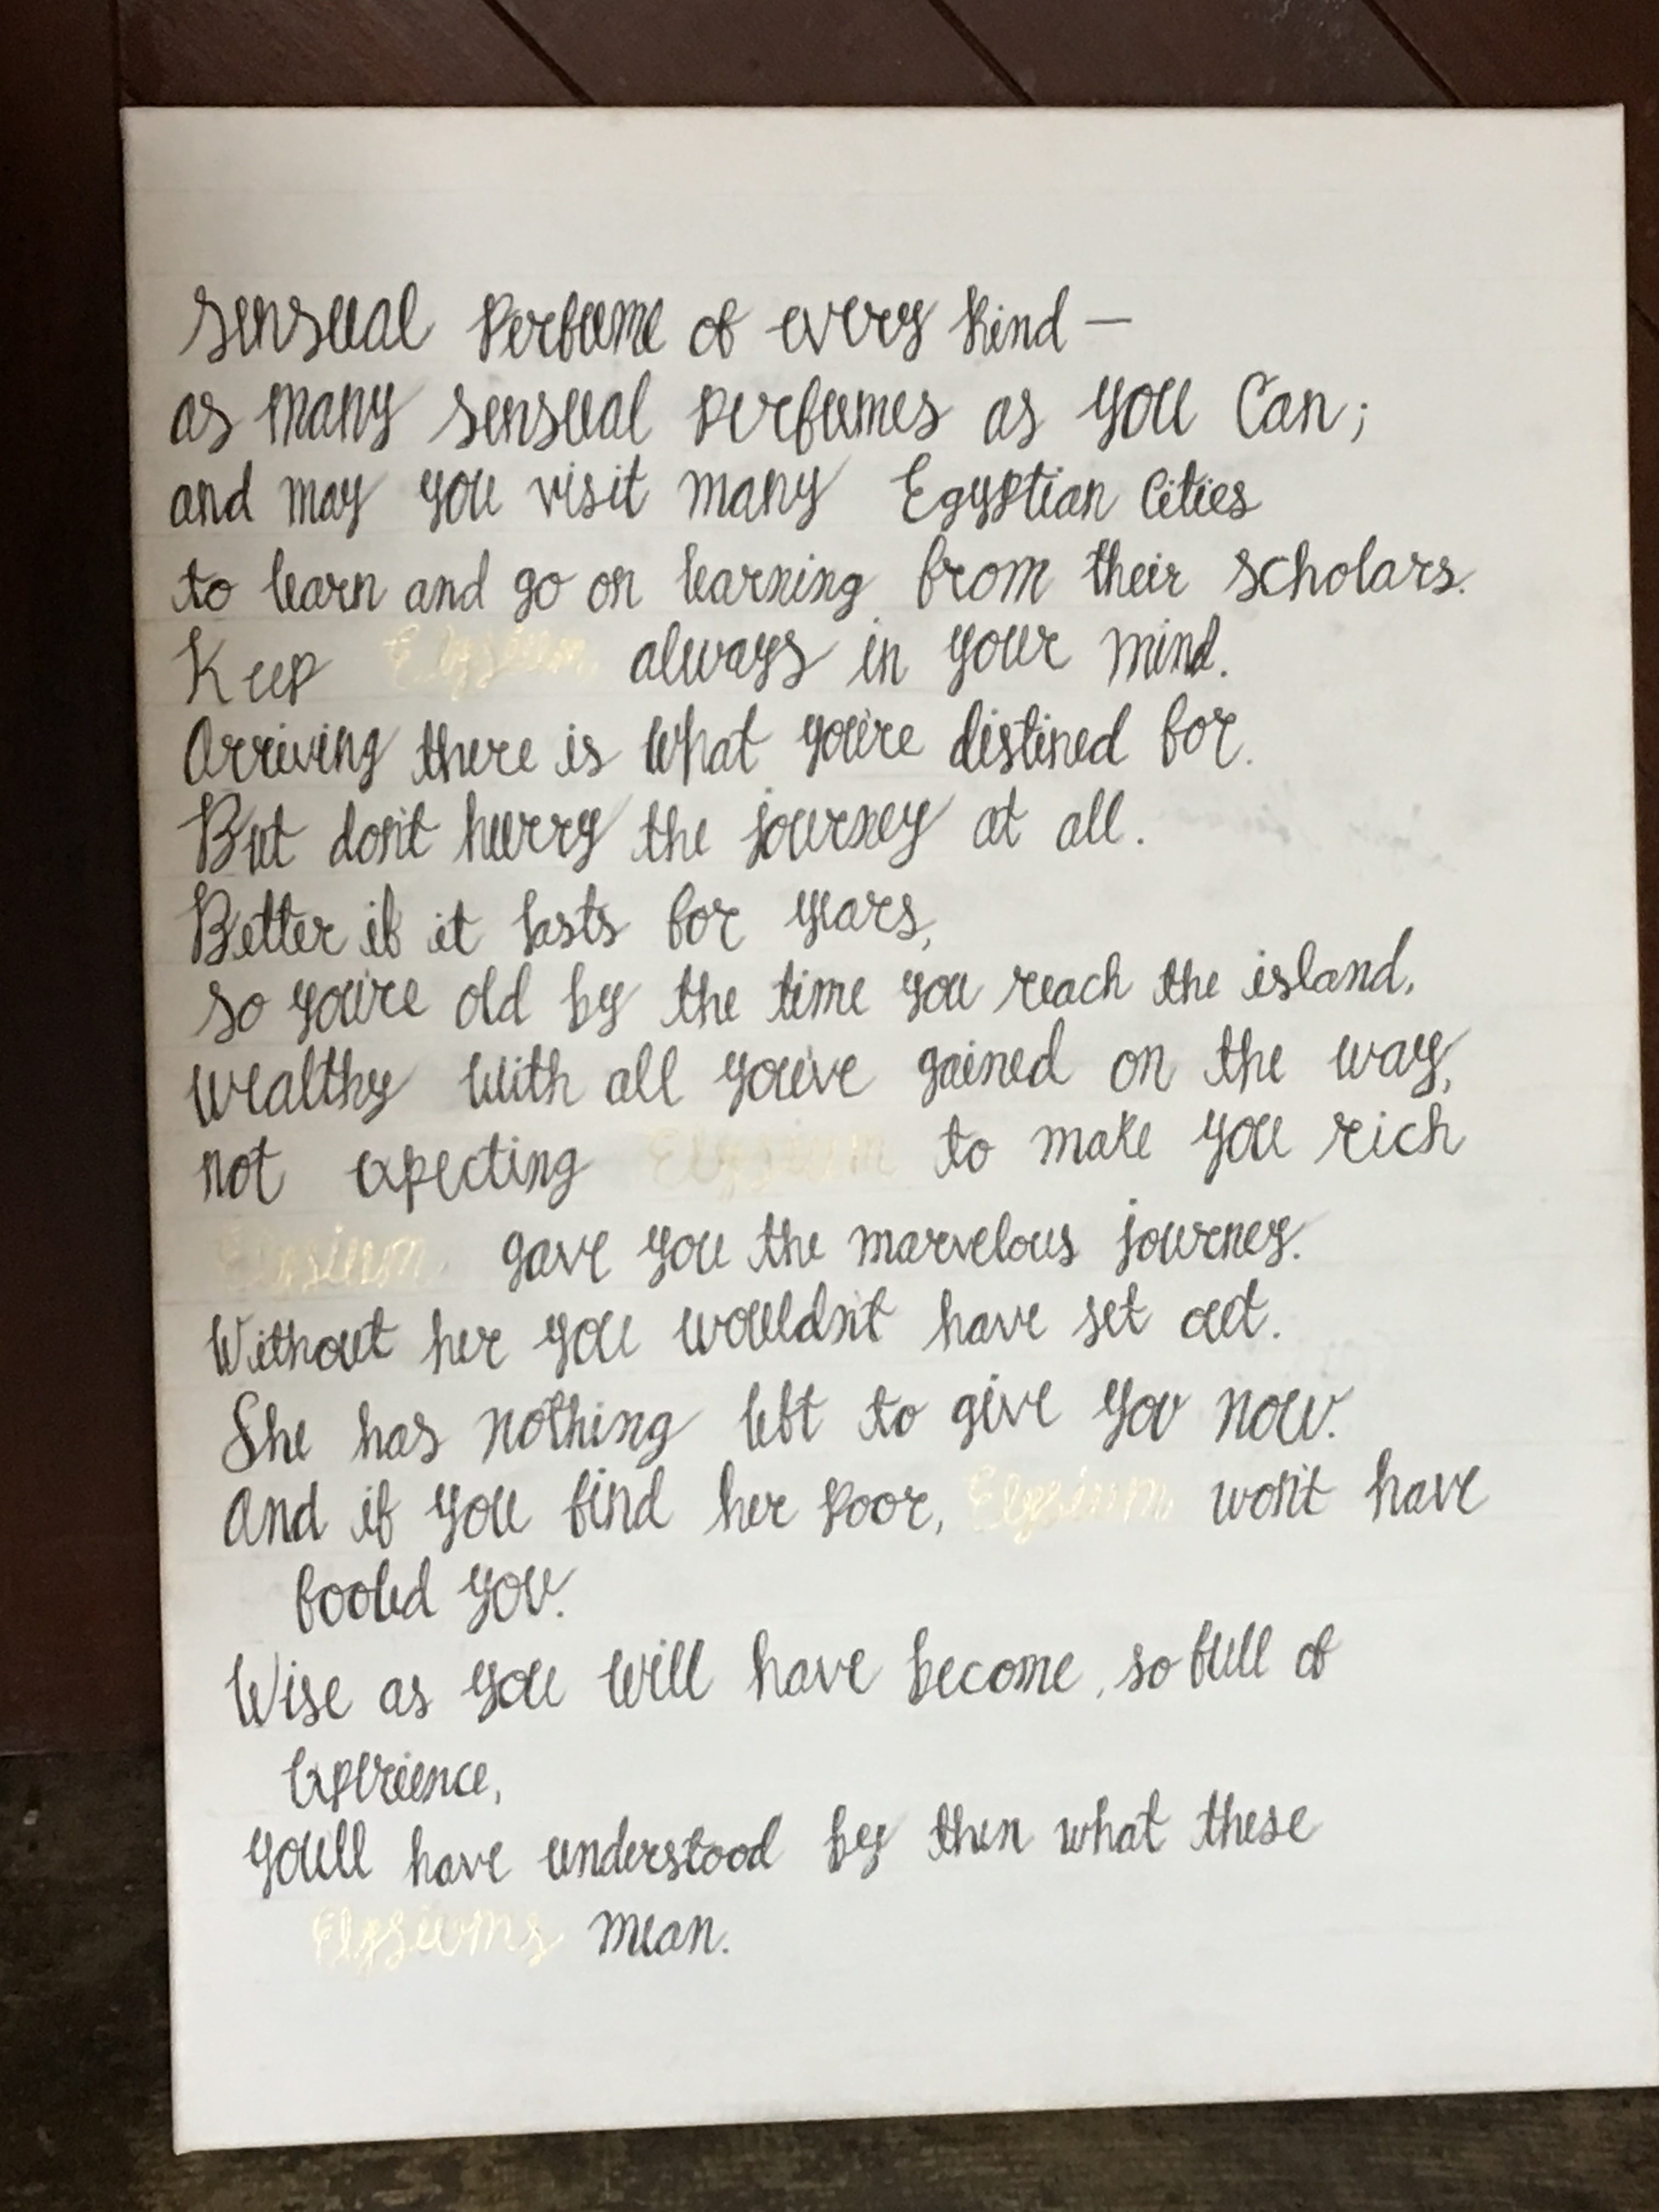 sensual perfume of every kind —
as many sensual perfumes as you can;
and may you visit many Egyptian Cities
to learn and go on learning from their scholars.
Keep Elysium always in your mind.
Arriving there is what you're distined for.
But don't hurry the journey at all.
Better if it lasts for years,
so you're old by the time you reach the island,
wealthy with all you've gained on the way,
not expecting Elysium to make you rich
Elysium gave you the marvelous journey.
Without her you wouldn't have set out.
She has nothing left to give you now.
And if you find her poor, Elysium won't have
fooled you.
Wise as you will have become, so full of
experience,
you'll have understood by then what these
Elysiums mean.